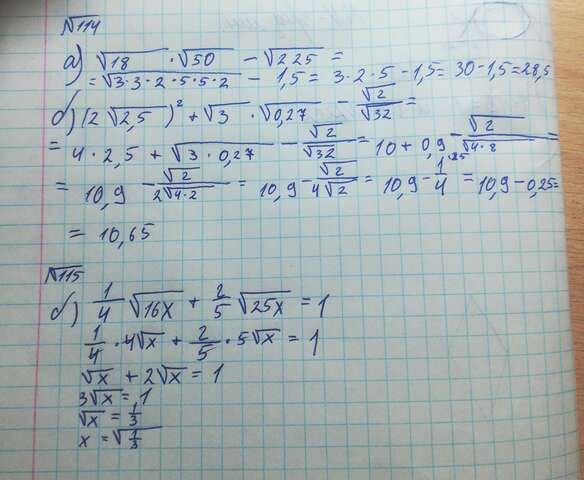 №114
а) √18 · √50 - √225 =
= √3·3·2·5·5·2 - 1,5 = 3·2·5 - 1,5 = 30 - 1,5 = 28,5
б) (2√2,5)² + √3 · √0,27 - √2/√32 =
= 4·2,5 + √3·0,27 - √2/√32 = 10 + 0,9 - √2/√4·8 =
= 10,9 - √2/2√4·2 = 10,9 - √2/4√2 = 10,9 - 1/4 = 10,9 - 0,25 =
= 10,65
№115
б) 1/4 √16x + 2/5 √25x = 1
1/4 · 4√x + 2/5 · 5√x = 1
√x + 2√x = 1
3√x = 1
√x = 1/3
x = √1/3